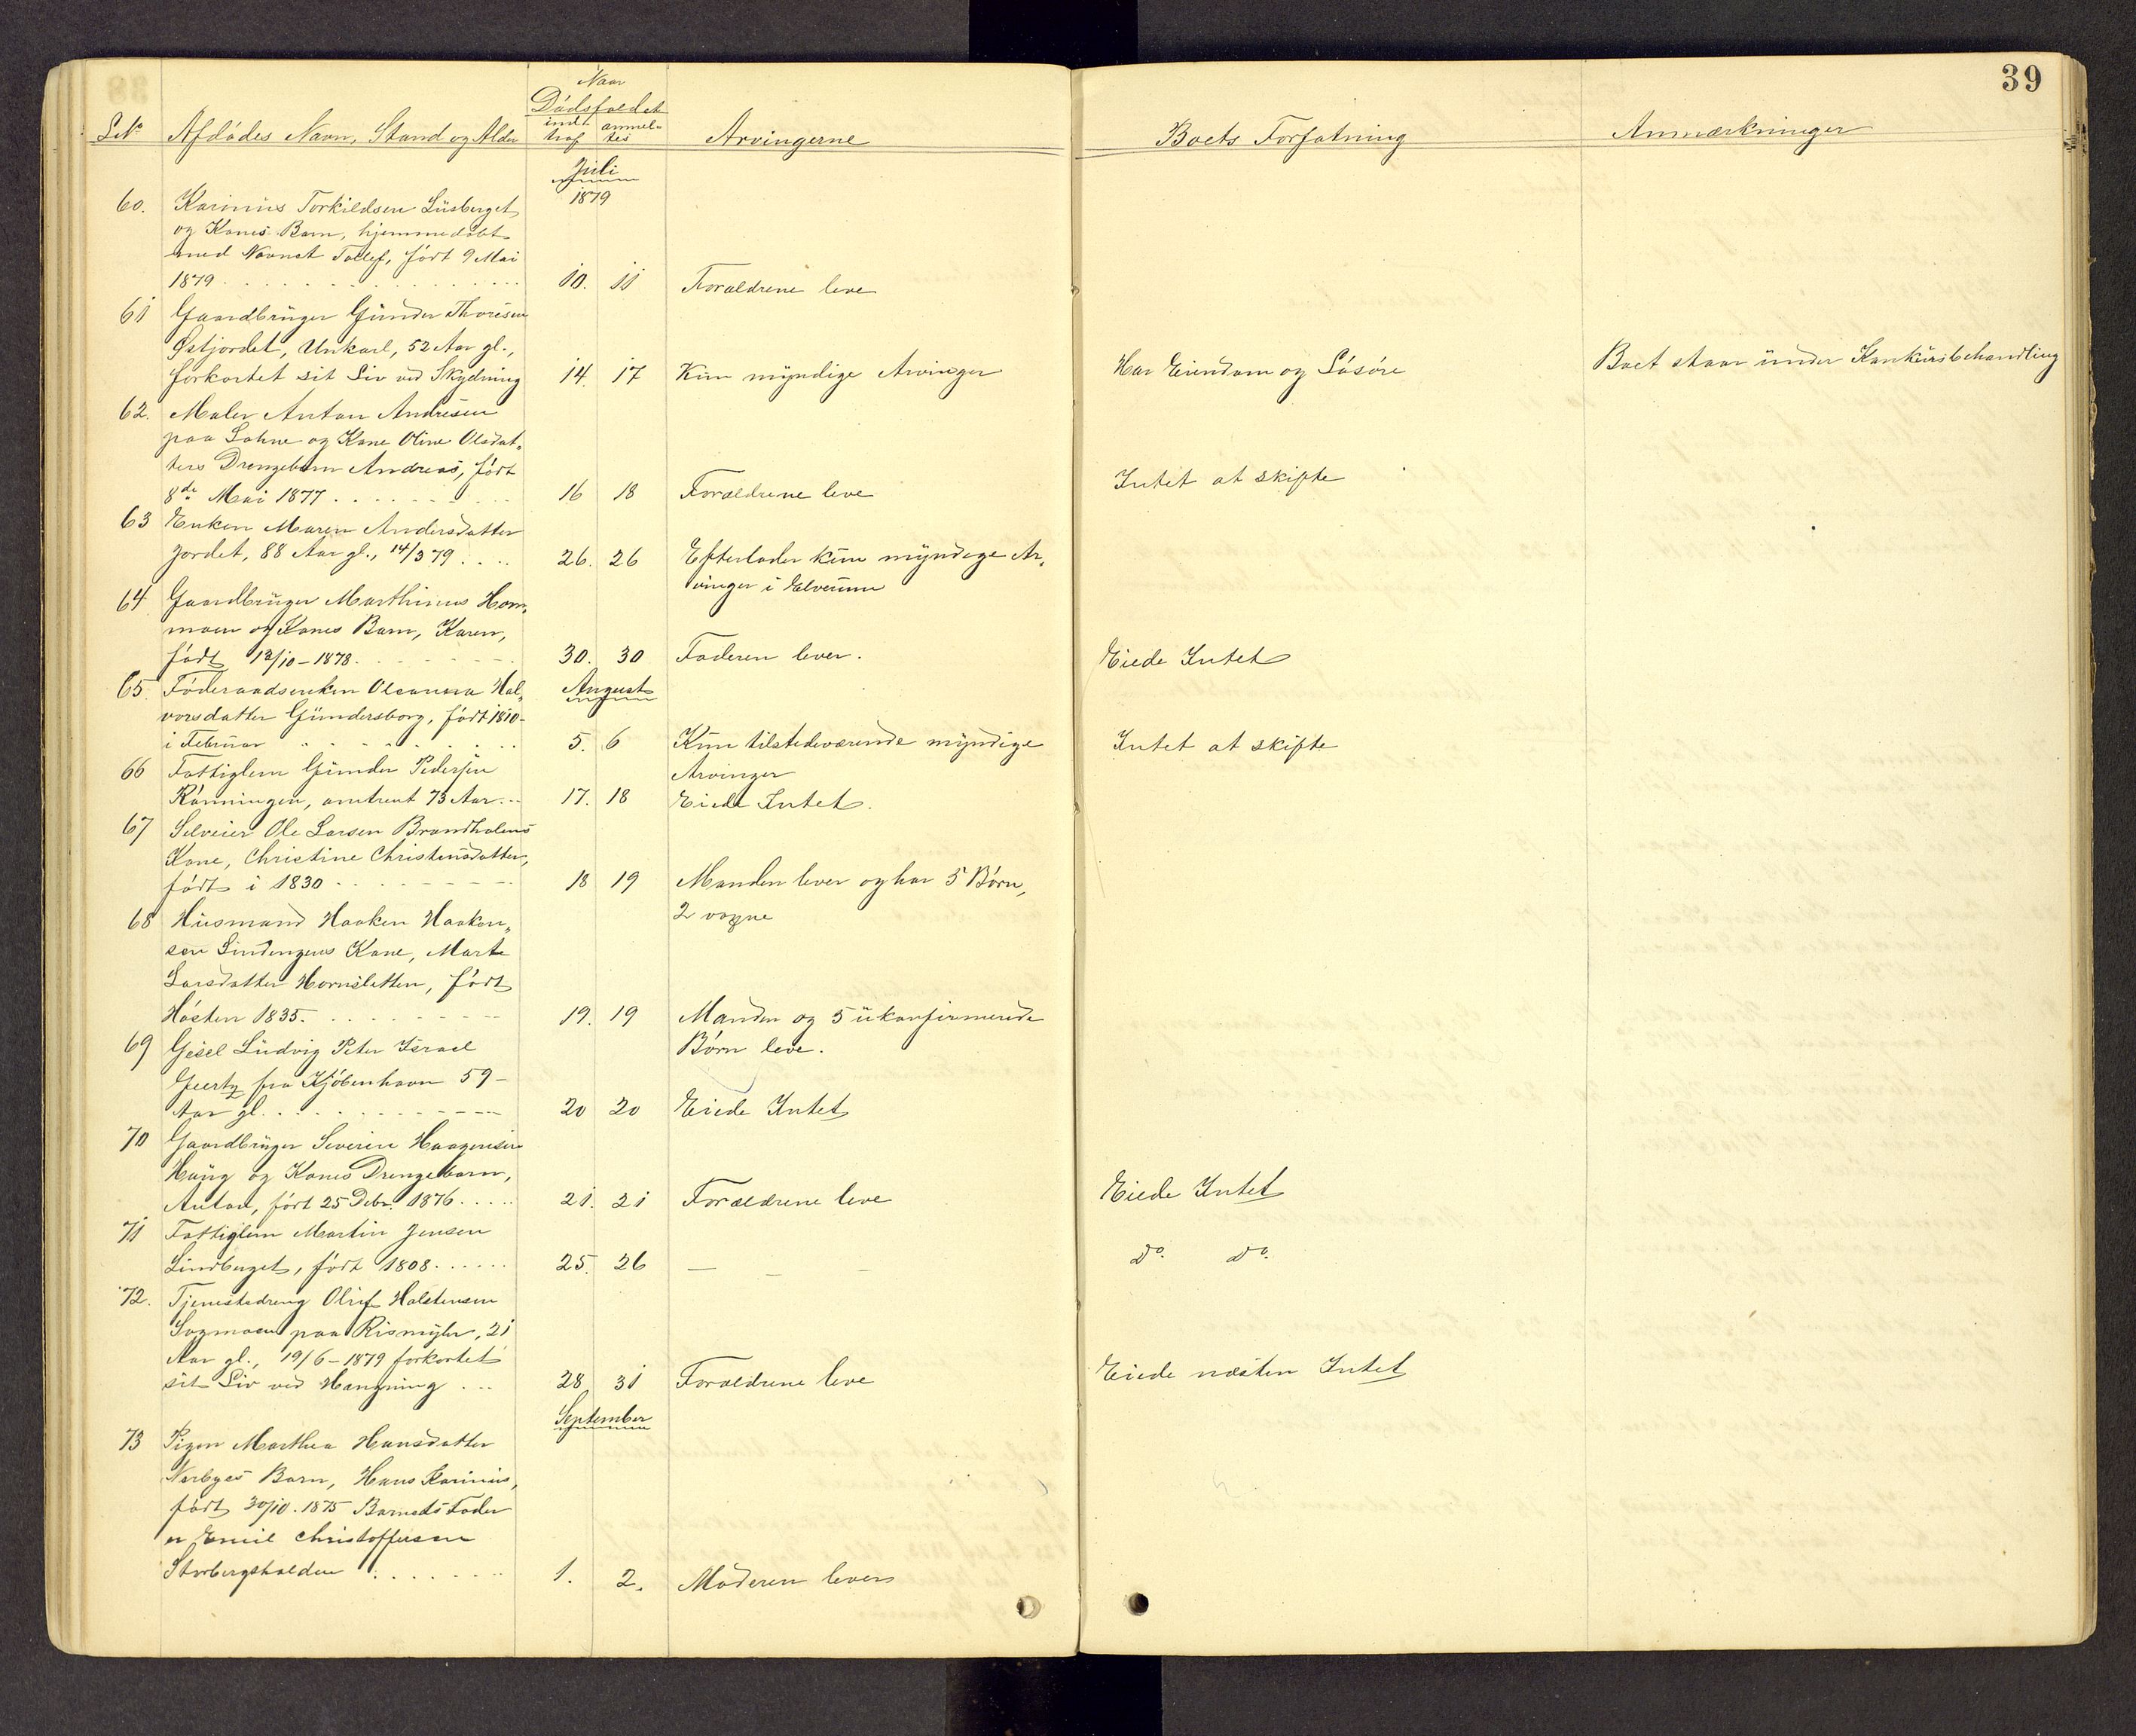 39
Naar
Dödsfaldet
L.№ Afdödes Navn, Stand og Alder indt traf anmel- tes Arvingerne Boets Forfatning Anmærkninger
Juli
1879
60. Karinus Torkildsen Lüsberget
og Kones Barn, hjemmedøbt
med Navnet Tollef, födt 9 Mai
1879 10. 11 Forældrene leve
61 Gaardbrüger Günder Thoresen
Østjordet, Unkarl, 52 Aar gl.,
forkortet sit Liv ved Skydning 14. 17 Kün myndige Arvinger Har Eiendom og Lösöre Boet staar ünder Konkürsbehandling
62. Maler Anton Andresen
paa Lohne og Kone Oline Olsdat-
ters Drengebarn Andreas, födt
8de Mai 1877 16 18 Forældrene leve Intet at skifte
63 Enken Maren Andersdatter
Jordet, 88 Aar gl., 14/3 79 26. 26 Efterlader kün myndige Ar-
vinger i Elverum
64 Gaardbrüger Marthinus Hom-
moen og Kones Barn, Karen,
födt 13/10-1878. 30. 30 Faderen lever. Eiede Intet
August
65. Föderaadsenken Oleanna Hal-
vorsdatter Gündersborg, födt 1810-
i Februar 5. 6 Kün tilstedeværende myndige Intet at skifte
Arvinger
66 Fattiglem Günder Pedersen
Rönningen, omtrent 73 Aar. 17. 18 Eiede Intet.
67 Selveier Ole Larsen Brandholens
Kone, Christine Christensdatter,
födt i 1830 18 19 Manden lever og har 5 Börn,
2 voxne
68 Hüsmand Haaken Haaken-
sen Lindengens Kone, Marte
Larsdatter Hornsletten, födt
Hösten 1835. 19. 19 Manden og 5 ükonfirmerede
Börn leve.
69 Gesel Lüdvig Peter Israel
Geertz fra Kjöbenhavn 59-
Aar gl. 20 20 Eiede Intet
70 Gaardbrüger Severin Haagensen
Haüg og Kones Drengebarn,
Anton, födt 25 Debr. 1876 21. 21 Forældrene leve Eiede Intet
71 Fattiglem Martin Jensen
Lindberget, födt 1808 25. 26 — — — Do. Do.
72. Tjenestedreng Oluf Halstensen
Sagmoen paa Rismyhr, 21
Aar gl., 19/6-1879 forkortet
sit Liv ved Hængning 28 31 Forældrene leve Eiede næsten Intet
September
73 Pigen Marthea Hansdatter
Nerbyes Barn, Hans Karinius,
födt 30/10. 1875 Barnets Fader
er Emil Christoffersen
Storbergshalden 1. 2. Moderen lever